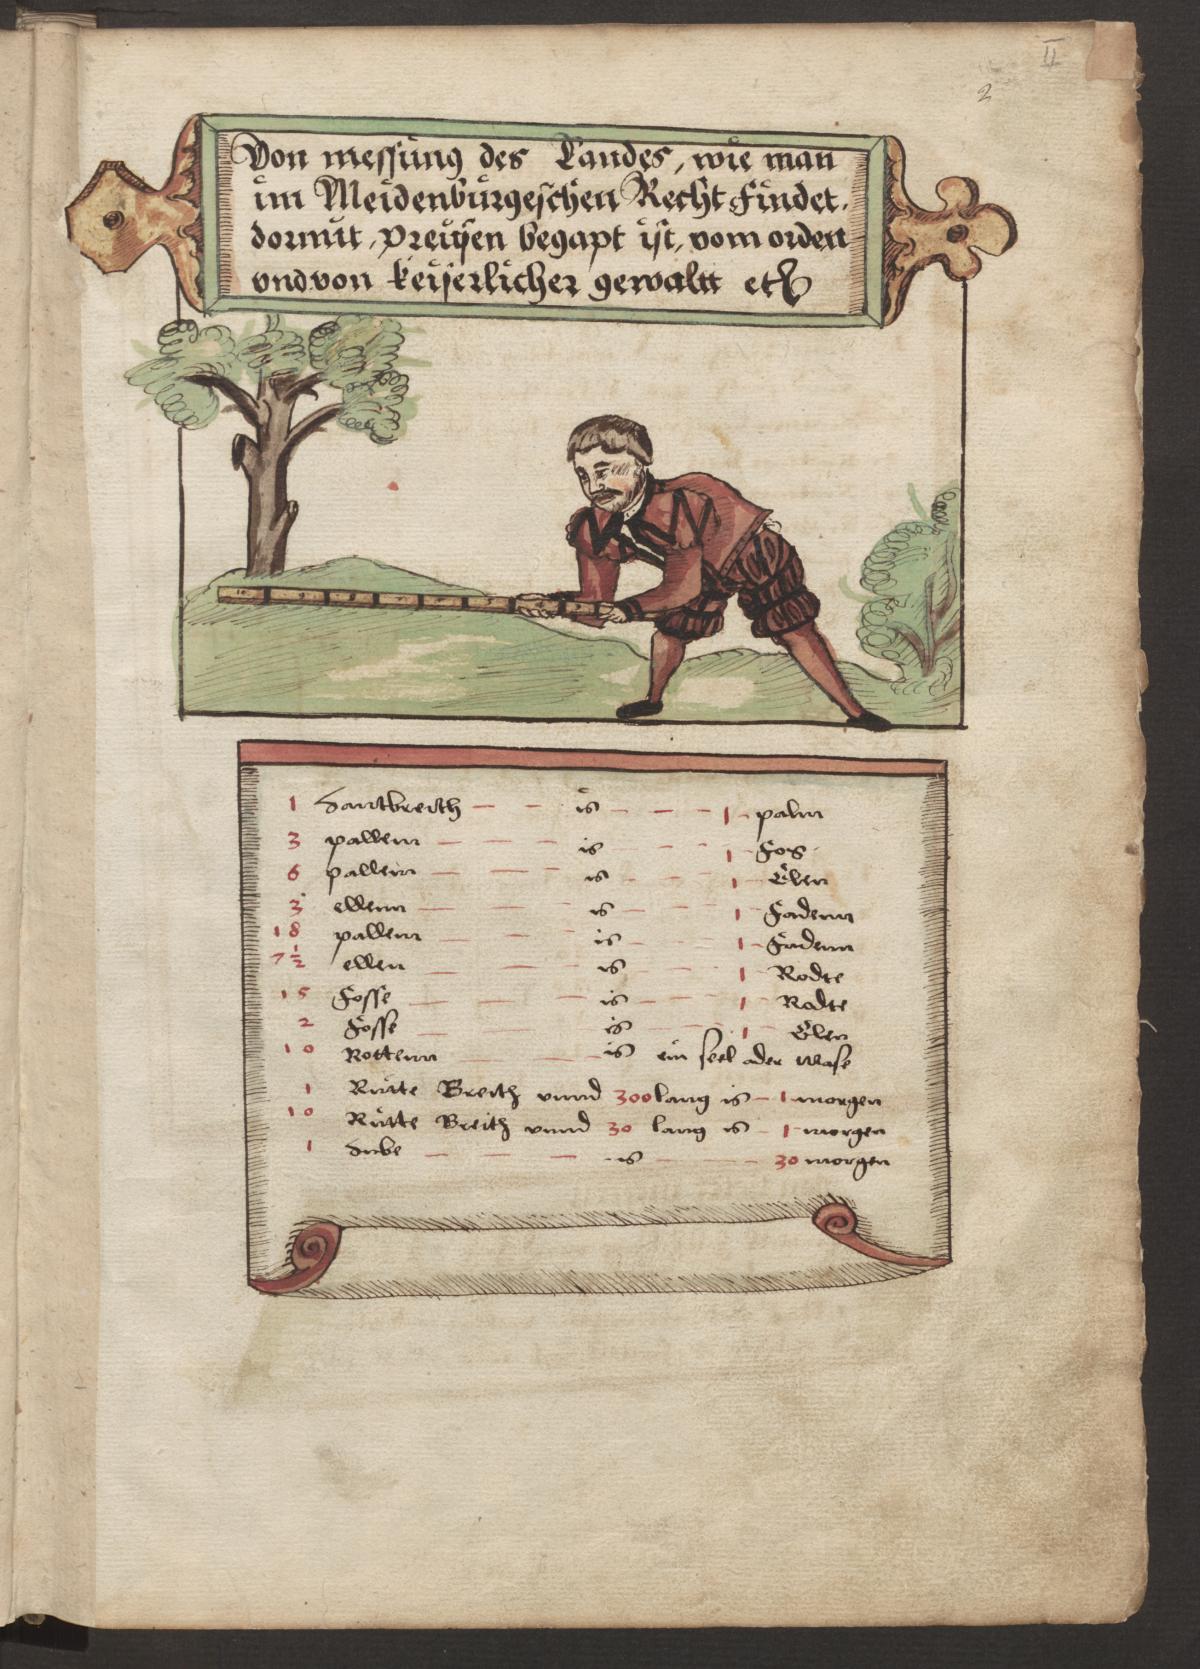 II
2
Von messung des Landes, wie man
im Meidenburgeschen Recht findet,
dormit, preusen begapt ist, vom orden
vnd von keiserlicher gewaltt etc
1 Hantbreith is 1 palm
3 pallem is 1 Fos
6 pallem is 1 Elen
3 ellenn is 1 Fadenn
18 pallem is 1 Fadenn
7 1/2 ellen is 1 Rodte
15 Fosse is 1 Rodte
2 Fosse is 1 Elen
10 Rottenn is ein seel oder wase
1 Rutte Breith vnnd 300 lang is 1 morgen
10 Rutte Breith vnnd 30 lang is 1 morgen
1 Hube is 30 morgen